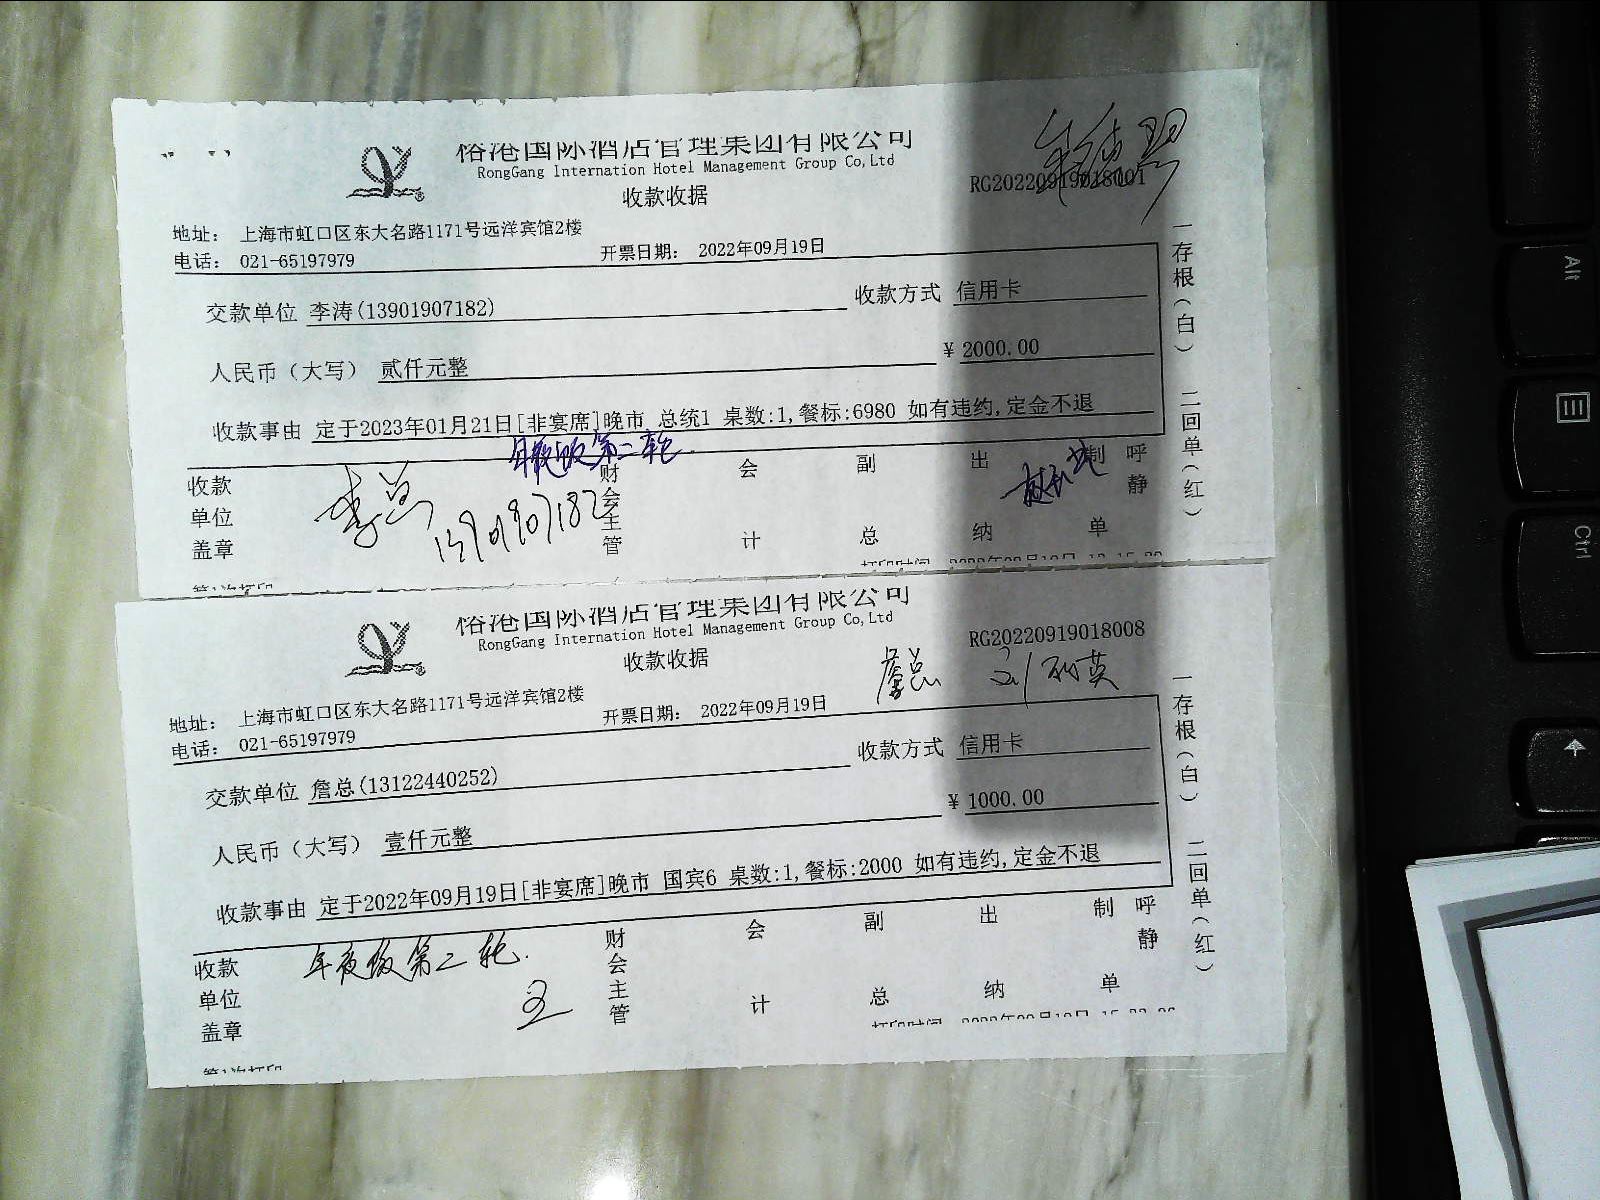 裕港国际酒店管理集团有限公司
RongGang Internation Hotel Management Group Co,Ltd
收款收据
RG20220919018001
地址： 上海市虹口区东大名路1171号远洋宾馆2楼
电话： 021-65197979
开票日期： 2022年09月19日
交款单位 李涛(13901907182)
收款方式 信用卡
人民币（大写） 贰仟元整
¥ 2000.00
收款事由 定于2023年01月21日[非宴席]晚市 总统1 桌数:1,餐标:6980 如有违约,定金不退
年夜饭第二轮
收款单位盖章
李总
13901907182
财会主管
会计
副总
出纳
制单
呼静
一存根(白) 二回单(红)
第1次打印
裕港国际酒店管理集团有限公司
RongGang Internation Hotel Management Group Co,Ltd
收款收据
RG20220919018008
詹总
地址： 上海市虹口区东大名路1171号远洋宾馆2楼
电话： 021-65197979
开票日期： 2022年09月19日
交款单位 詹总(13122440252)
收款方式 信用卡
人民币（大写） 壹仟元整
¥ 1000.00
收款事由 定于2022年09月19日[非宴席]晚市 国宾6 桌数:1,餐标:2000 如有违约,定金不退
年夜饭第二轮.
收款单位盖章
财会主管
会计
副总
出纳
制单
呼静
一存根(白) 二回单(红)
第1次打印
Alt
Ctrl